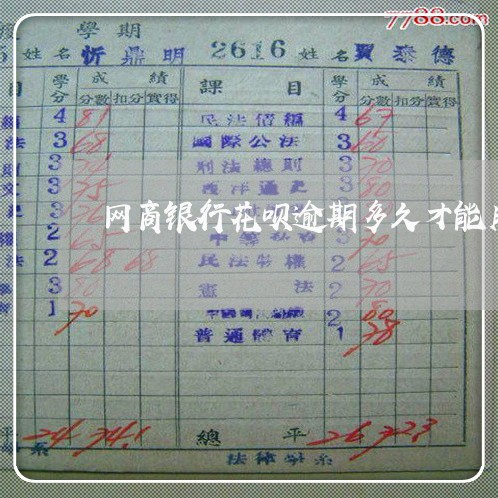 7788.com
學期
姓名 忻鼎明 2616 姓名 賈泰德
目 學分 成績 課目 學分 成績
分數 扣分 實得 分數 扣分 實得
4 81 民法債編 4 67
法 3 68 國際公法 3 60
3 刑法總則 3 70
3 75 西洋通史 3 80
网商银行花呗逾期多久才能
2 70
法 2 68 68 民法物權 2 65
3 80 憲法 2 70
1 70 2 80
普通體育 1 78
平 24 74.1 總平 26 72.3
系 法律學系